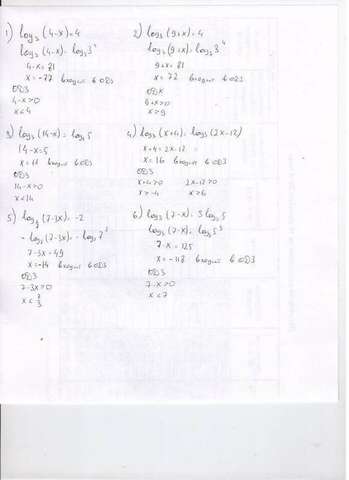 1) log₃ (4-x)=4
log₃ (4-x)=log₃3⁴
4-x=81
x=-77 входит в ОДЗ
ОДЗ
4-x>0
x<4
2) log₃ (9+x)=4
log₃ (9+x)=log₃3⁴
9+x=81
x=72 входит в ОДЗ
9+x>0
x>9
3) log₃ (14-x)=log₃5
14-x=5
x=11 входит в ОДЗ
ОДЗ
14-x>0
x<14
4) log₃ (x+4)=log₃(2x-12)
x+4=2x-12
x=16 входит в ОДЗ
ОДЗ
x+4>0 2x-12>0
x>-4 x>6
5) (7-3x)=-2
7-3x=49
x=-14 входит в ОДЗ
ОДЗ
7-3x>0
x<7/3
6) log₃ (7-x)=3log₃5
log₃ (7-x)=log₃5³
7-x=125
x=-118 входит в ОДЗ
ОДЗ
7-x>0
x<7